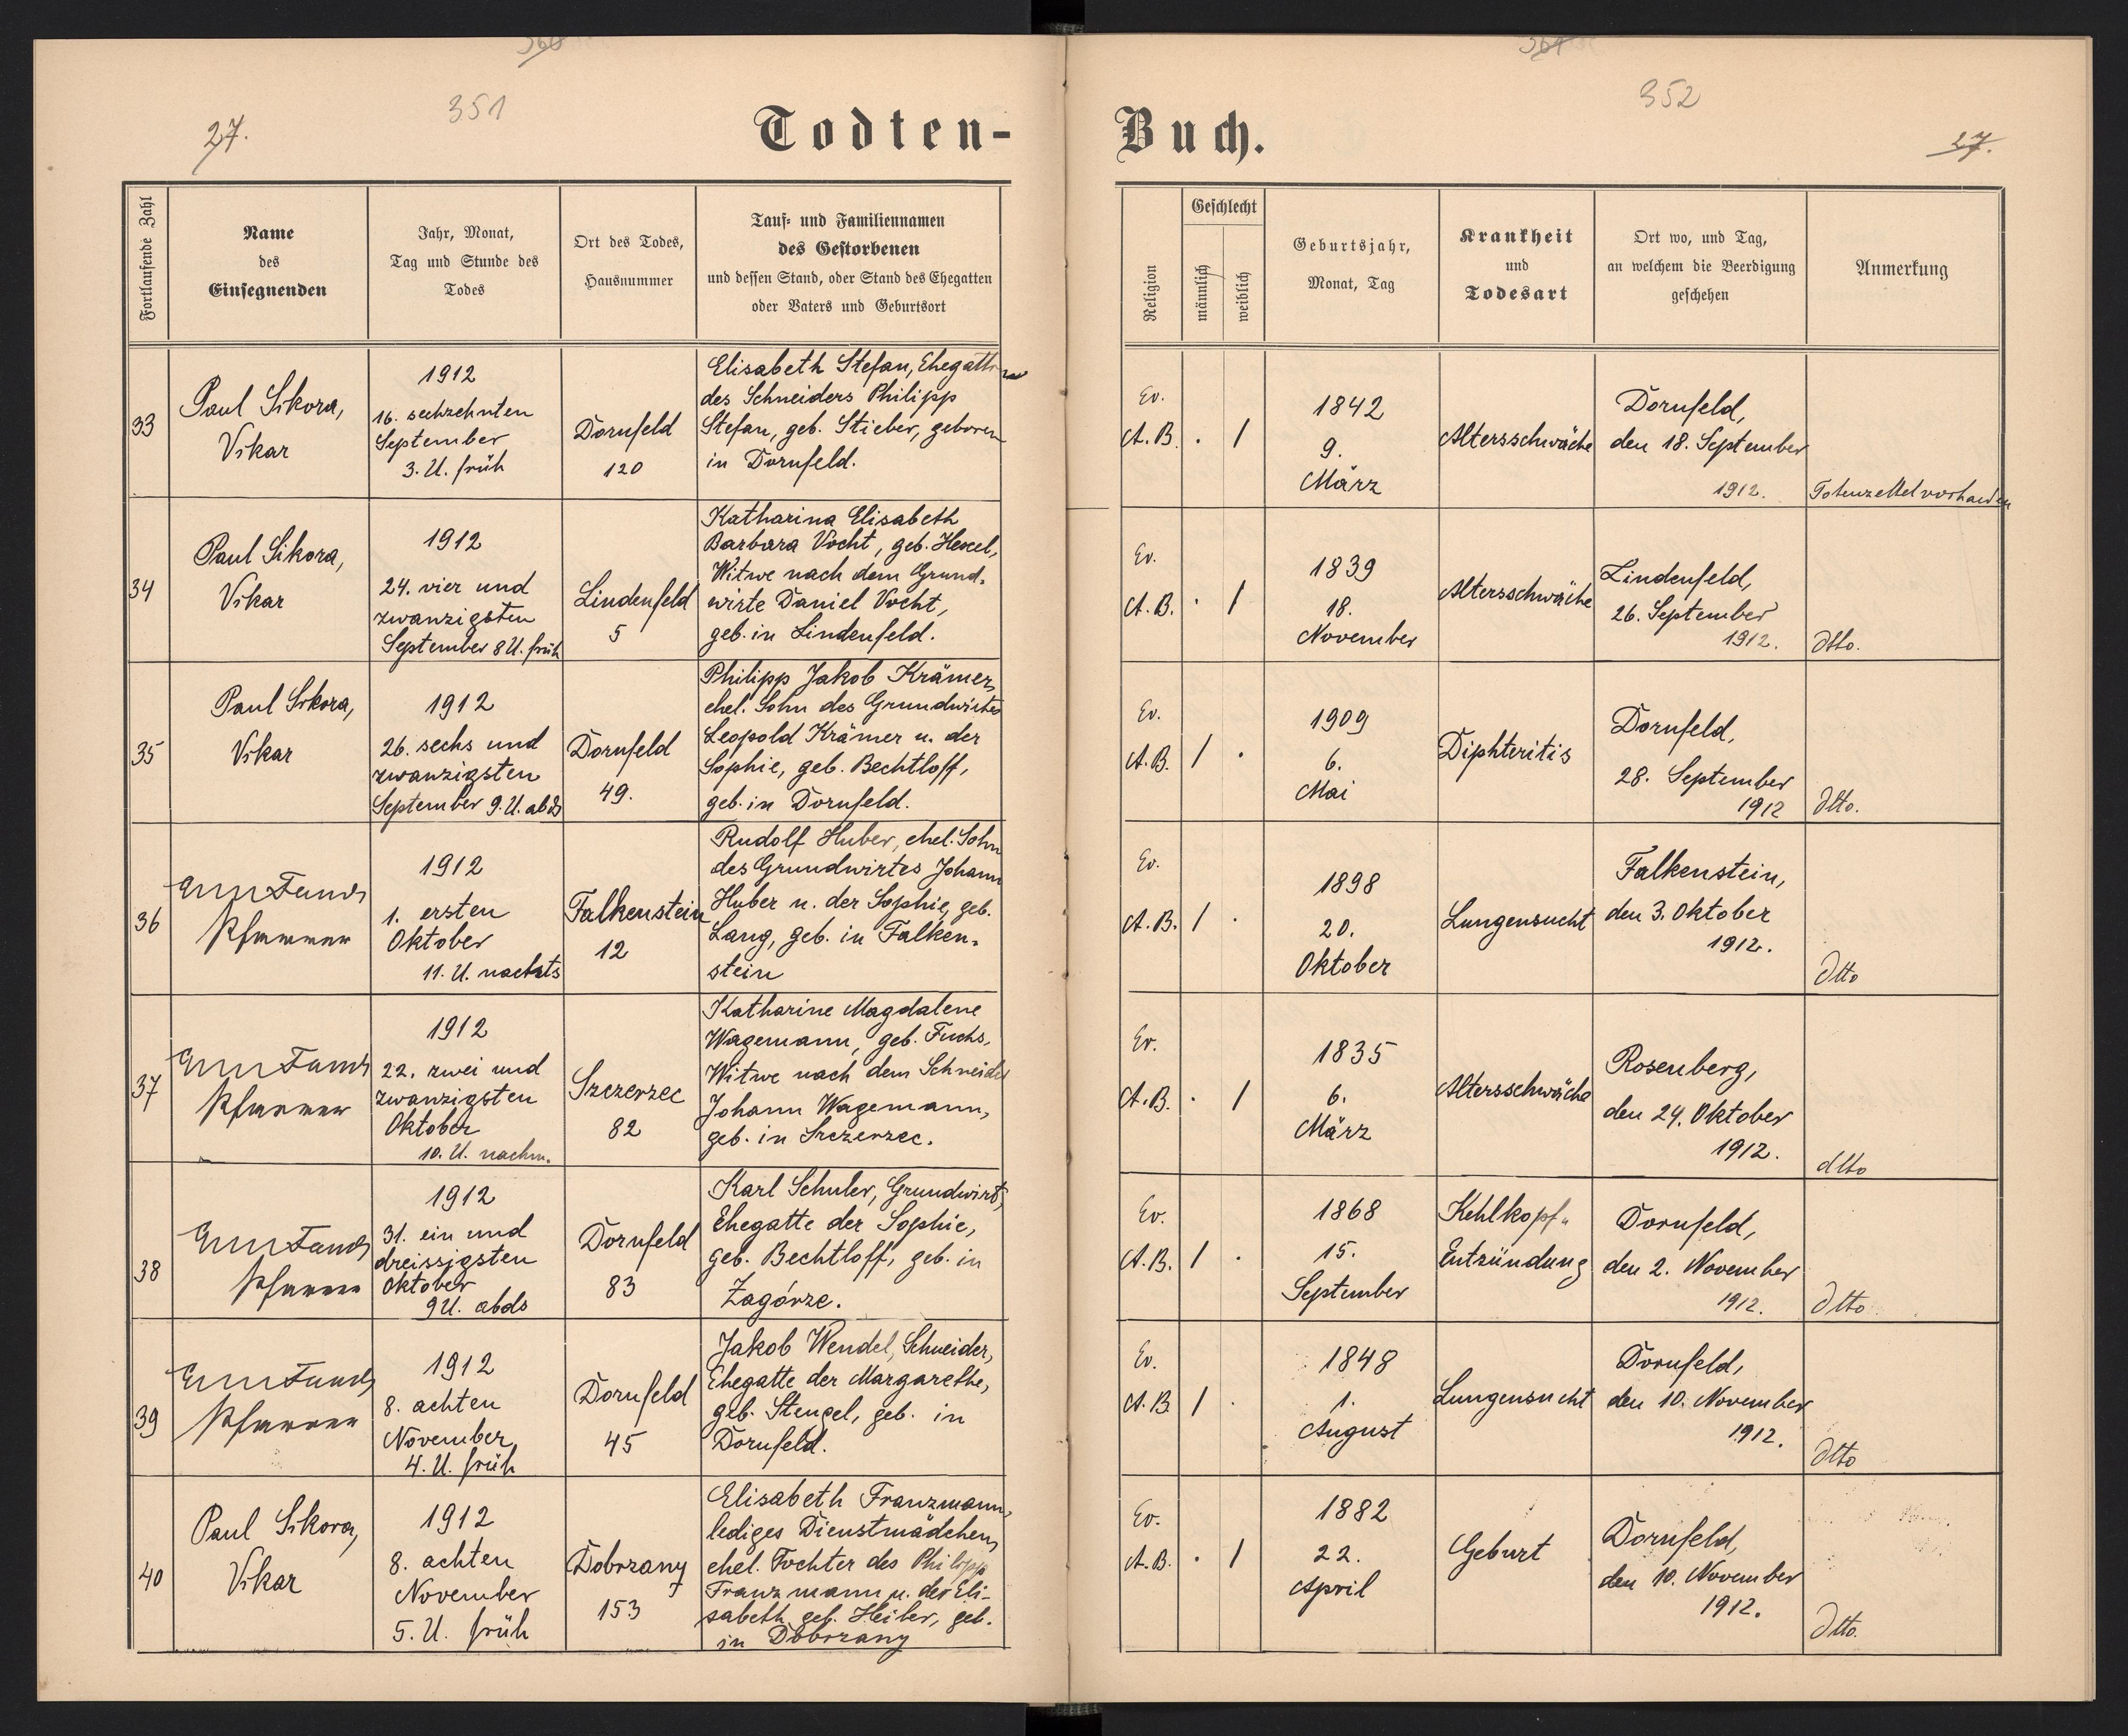 27.
351
Todten-
Fortlaufende Zahl
Name
des
Einsegnenden
Jahr, Monat,
Tag und Stunde des
Todes
Ort des Todes,
Hausnummer
Tauf- und Familiennamen
des Gestorbenen
und dessen Stand, oder Stand des Ehegatten
oder Vaters und Geburtsort
33
Paul Sikora,
Vikar
1912
16. sechzehnten
September
3. U. früh
Dornfeld
120
Elisabeth Stefan, Ehegattin
des Schneiders Philipp
Stefan, geb. Stieber, geboren
in Dornfeld.
34
Paul Sikora,
Vikar
1912
24. vier und
zwanzigsten
September 8 U. früh
Lindenfeld
5
Katharina Elisabeth
Barbara Vocht, geb.
Witwe nach dem Grund-
wirte Daniel Vocht,
geb. in Lindenfeld.
35
Paul Sikora,
Vikar
1912
26. sechs und
zwanzigsten
September 9. U. abds
Dornfeld
49.
Philipp Jakob Krämer,
ehel. Sohn des Grundwirtes
Leopold Krämer u. der
Sophie, geb. Bechtloff,
geb. in Dornfeld.
36
Pfarrer
1912
1. ersten
Oktober
11. U. nachts
Falkenstein
12
Rudolf Huber, ehel. Sohn
des Grundwirtes Johann
Huber u. der Sophie, geb.
Lang, geb. in Falken-
stein
37
Pfarrer
1912
22. zwei und
zwanzigsten
Oktober
10. U. nachm.
Szczerzec
82
Katharine Magdalene
Wagemann, geb. Fuchs,
Witwe nach dem Schneider
Johann Wagemann,
geb. in Szczerzec.
38
Pfarrer
1912
31. ein und
dreissigsten
Oktober
9 U. abds
Dornfeld
83
Karl Schuler, Grundwirt,
Ehegatte der Sophie,
geb. Bechtloff, geb. in
Zagórze.
39
Pfarrer
1912
8. achten
November
4. U. früh
Dornfeld
45
Jakob Wendel, Schneider,
Ehegatte der Margarethe,
geb. Stengel, geb. in
Dornfeld.
40
Paul Sikora,
Vikar
1912
8. achten
November
5. U. früh
Dobrzany
153
Elisabeth Franzmann,
lediges Dienstmädchen,
ehel. Tochter des Philipp
Franzmann u. der Eli-
sabeth geb. Heiler, geb.
in Dobrzany
352
27.
Buch.
Religion
Geschlecht
männlich
weiblich
Geburtsjahr,
Monat, Tag
Krankheit
und
Todesart
Ort wo, und Tag,
an welchem die Beerdigung
geschehen
Anmerkung
Ev.
A. B. . /
1842
9.
März
Altersschwäche
Dornfeld,
den 18. September
1912.
Totenzettel vorhanden
Ev.
A. B. . /
1839
18.
November
Altersschwäche
Lindenfeld,
26. September
1912.
dtto.
Ev.
A. B. / .
1909
6.
Mai
Diphteritis
Dornfeld,
28. September
1912
dtto.
Ev.
A. B. / .
1898
20.
Oktober
Lungensucht
Falkenstein,
den 3. Oktober
1912.
dtto
Ev.
A. B. . /
1835
6.
März
Altersschwäche
Rosenberg,
den 24. Oktober
1912.
dtto
Ev.
A. B. / .
1868
15.
September
Kehlkopf-
Entzündung
Dornfeld,
den 2. November
1912.
dtto
Ev.
A. B. / .
1848
1.
August
Lungensucht
Dornfeld,
den 10. November
1912.
dtto
Ev.
A. B. . /
1882
22.
April
Geburt
Dornfeld,
den 10. November
1912.
dtto.